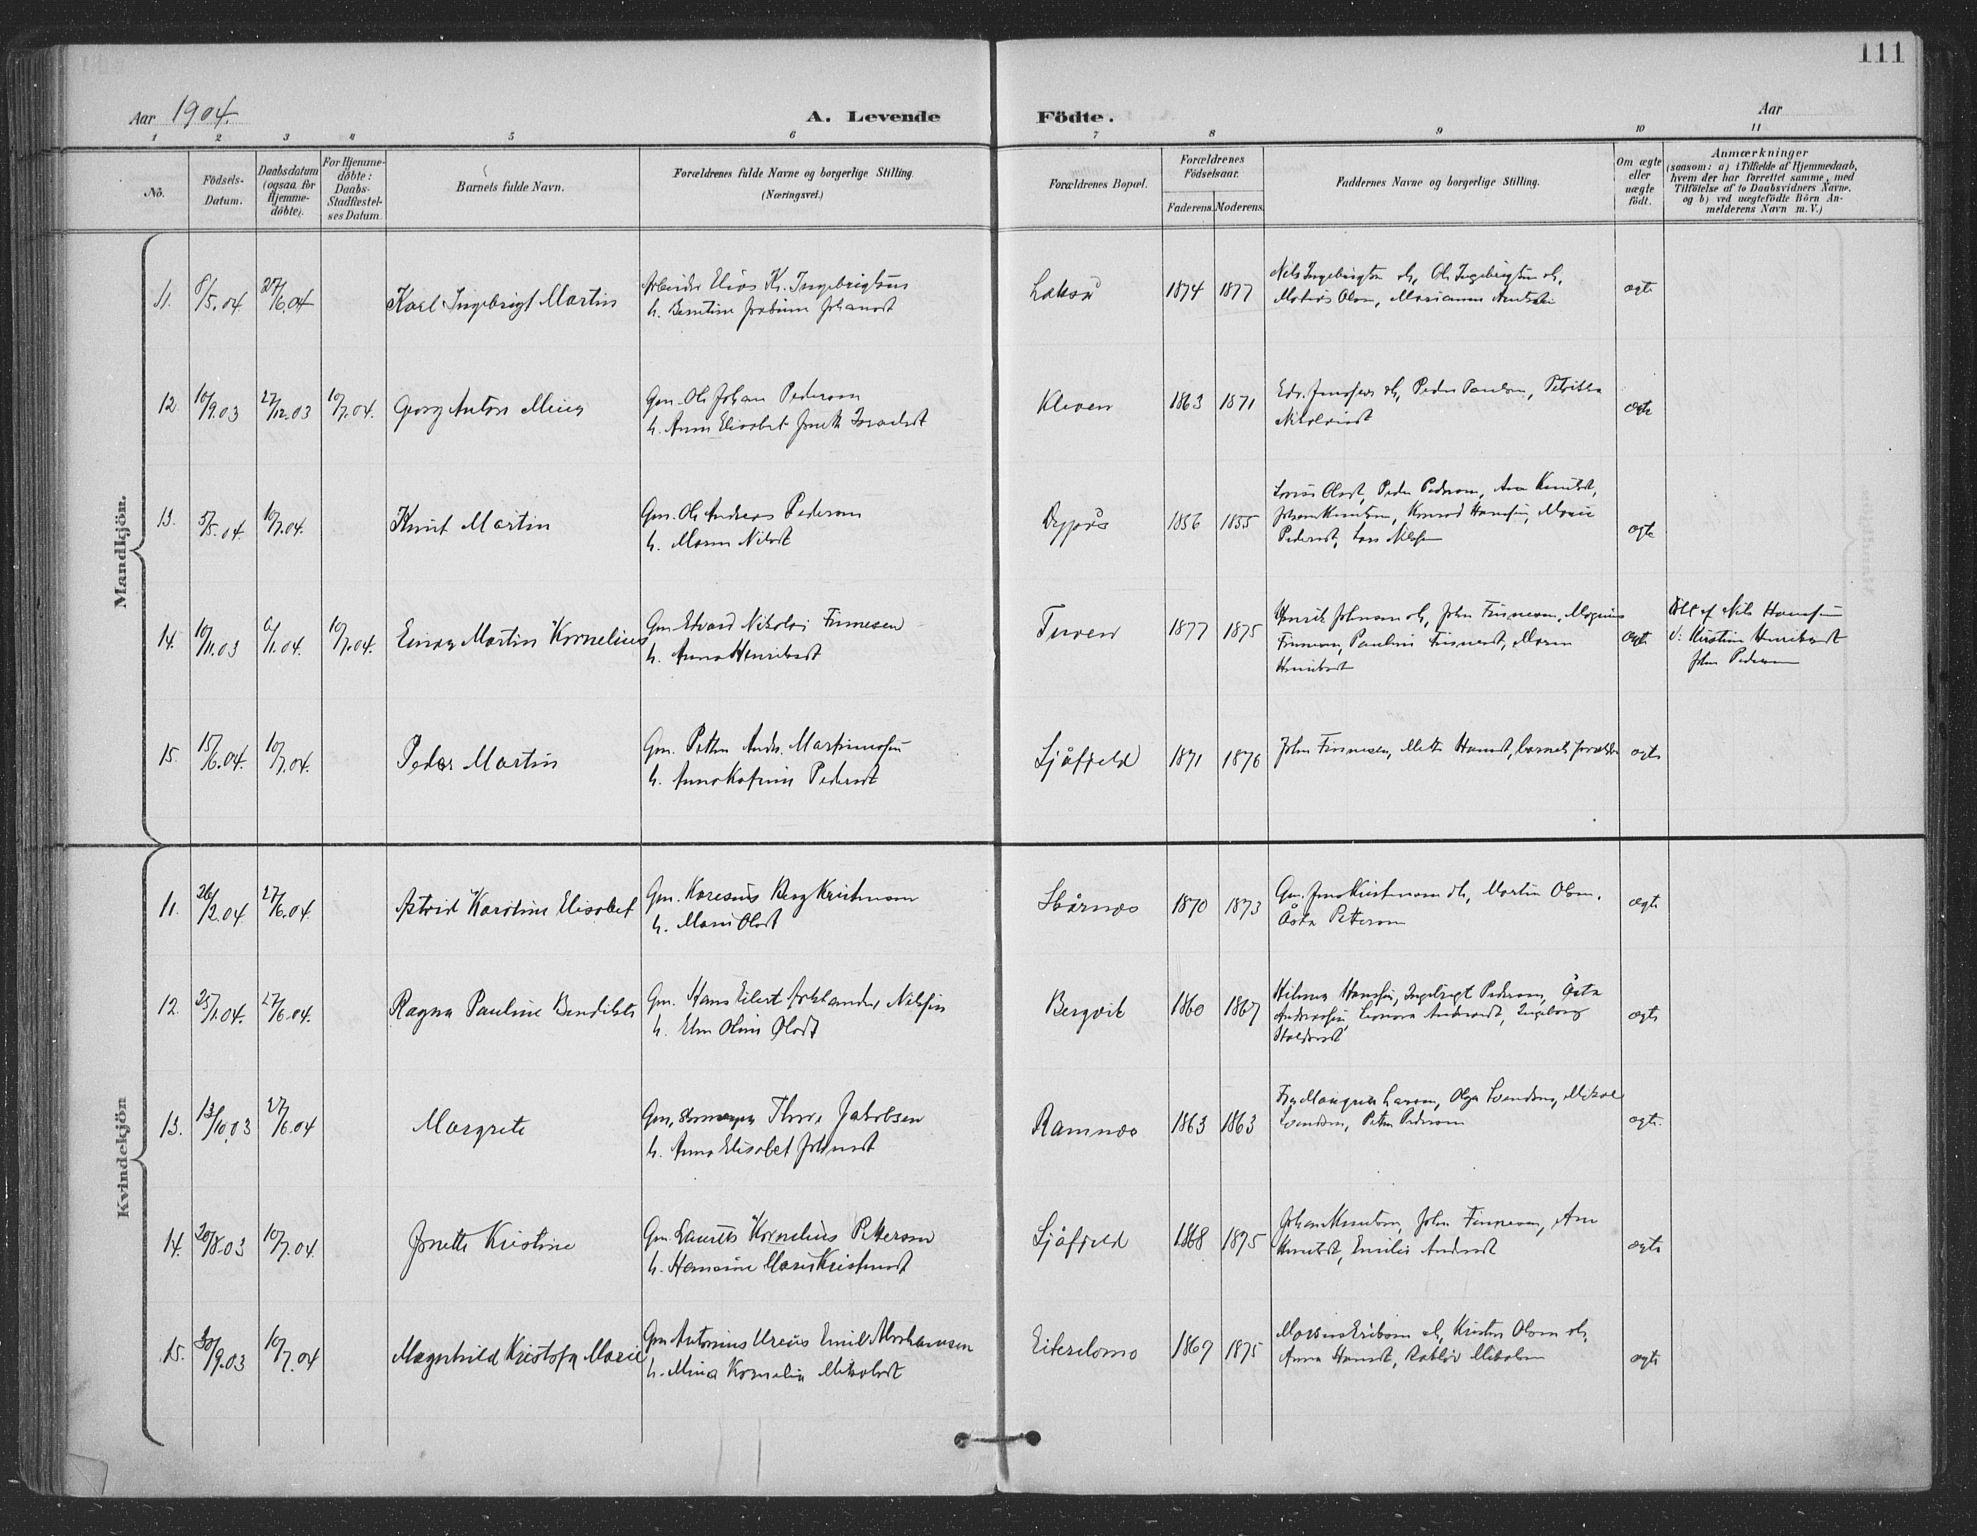 111
Aar 1904.
A. Levende Födte.
Aar
1 2 3 4 5 6 7 8 9 10 11
Nö.
Födsels-Datum.
Daabsdatum (ogsaa for Hjemme-döbte).
For Hjemme-döbte: Daabs-Stadfæstel-ses Datum
Barnets fulde Navn.
Forældrenes fulde Navne og borgerlige Stilling.
(Næringsvei.)
Forældrenes Bopæl.
Forældrenes Födselsaar.
Faderens. Moderens.
Faddernes Navne og borgerlige Stilling.
Om ægte eller uægte födt.
Anmærkninger
(saasom: a) i Tilfælde af Hjemmedaab,
hvem der har forrettet samme, med
Tilföielse af to Daabsvidners Navne,
og b) ved uægtefödte Börn An-
melderens Navn m. V.)
Mandkjön.
11. 8/5.04 27/6.04 Karl Ingebrigt Martin
Arbeider Elias Kr. Ingebrigtsen
h. Johansd
1874 1877
Nils Ingebrigtsen Ole Ingebrigtsen
Olsen, Marianne
ægte
12 10/9.03 27/12.03 10/7.04. Georg Anton
Gm. Ole Johan Pedersen
h. Anna Elisabet
Kleven 1863 1871
Peder Paulsen, Petrikka
Nikolaisd
ægte
13. 5/5.04 10/7.04. Knut Martin
Gm. Ole Andreas Pedersen
h. Maren Nilsd
1856 1855
Olsd, Peder Pedersen, Ane Knutsd,
Johan Knutsen, Konrad Hansen, Marie
Pedersd, Lars Nilsen
ægte
14. 10/11.03 6/1.04. 10/7.04. Einar Martin Kornelius
Gm. Edvard Nikolai Finnesen
h. Anna Henriksd
Tuven 1877 1875
Henrik Johnsen John Finnesen, Magnus
Finnesen, Pauline Finnesd, Maren
Henriksd
ægte
af Nils Hansen
v: Kirstine Henriksd
John Pedersen
15. 15/6.04. 10/7.04. Peder Martin
Gm. Petter Andr. Martinusen
h. Anna Katrine Pedersd
Sjåfjeld 1871 1876
John Finnesen, Mette Hansd, barnets forældre
ægte
Kvindekjön
11. 26/2.04 27/6.04. Astrid Karoline Elisabet
Gm. Berg Kristensen
h. Marie Olsd
Skårnes 1870 1873
Gm. Jens Kristensen Martin Olsen.
Åsta Pettersen
ægte
12. 25/1.04. 27/6.04. Ragna Pauline
Gm. Hans Eilert Nilsen
h. Oline Olsd
Bergvik 1860 1867
Hilmar Hansen, Ingebrigt Pedersen, Åsta
Andreasen, Leonora Ingeborg
ægte
13. 13/10.03 27/6.04 Margrete
Gm, Thore Jakobsen
h. Anna Elisabet
Ramnes 1863 1863
Larsen, Olga Svendsen, Mikal
Svendsen, Petra Pedersen
ægte.
14. 20/8.03 10/7.04. Jonette Kristine
Gm. Laurits Kornelius Pettersen
h. Hansine Marie Kristensd
Sjåfjeld 1868 1875
Johan Knutsen, John Finnesen, Ane
Knutsd, Emilie Andersd
ægte
15. 30/9.03 10/7.04 Magnhild Kristofa Marie
Gm Antonius Ureus Emil Abrahamsen
h. Mina Kornelia Mikalsd
1869 1875
Marius Eriksen Kristen Olsen
Anna Hansd, Mikalsen
ægte